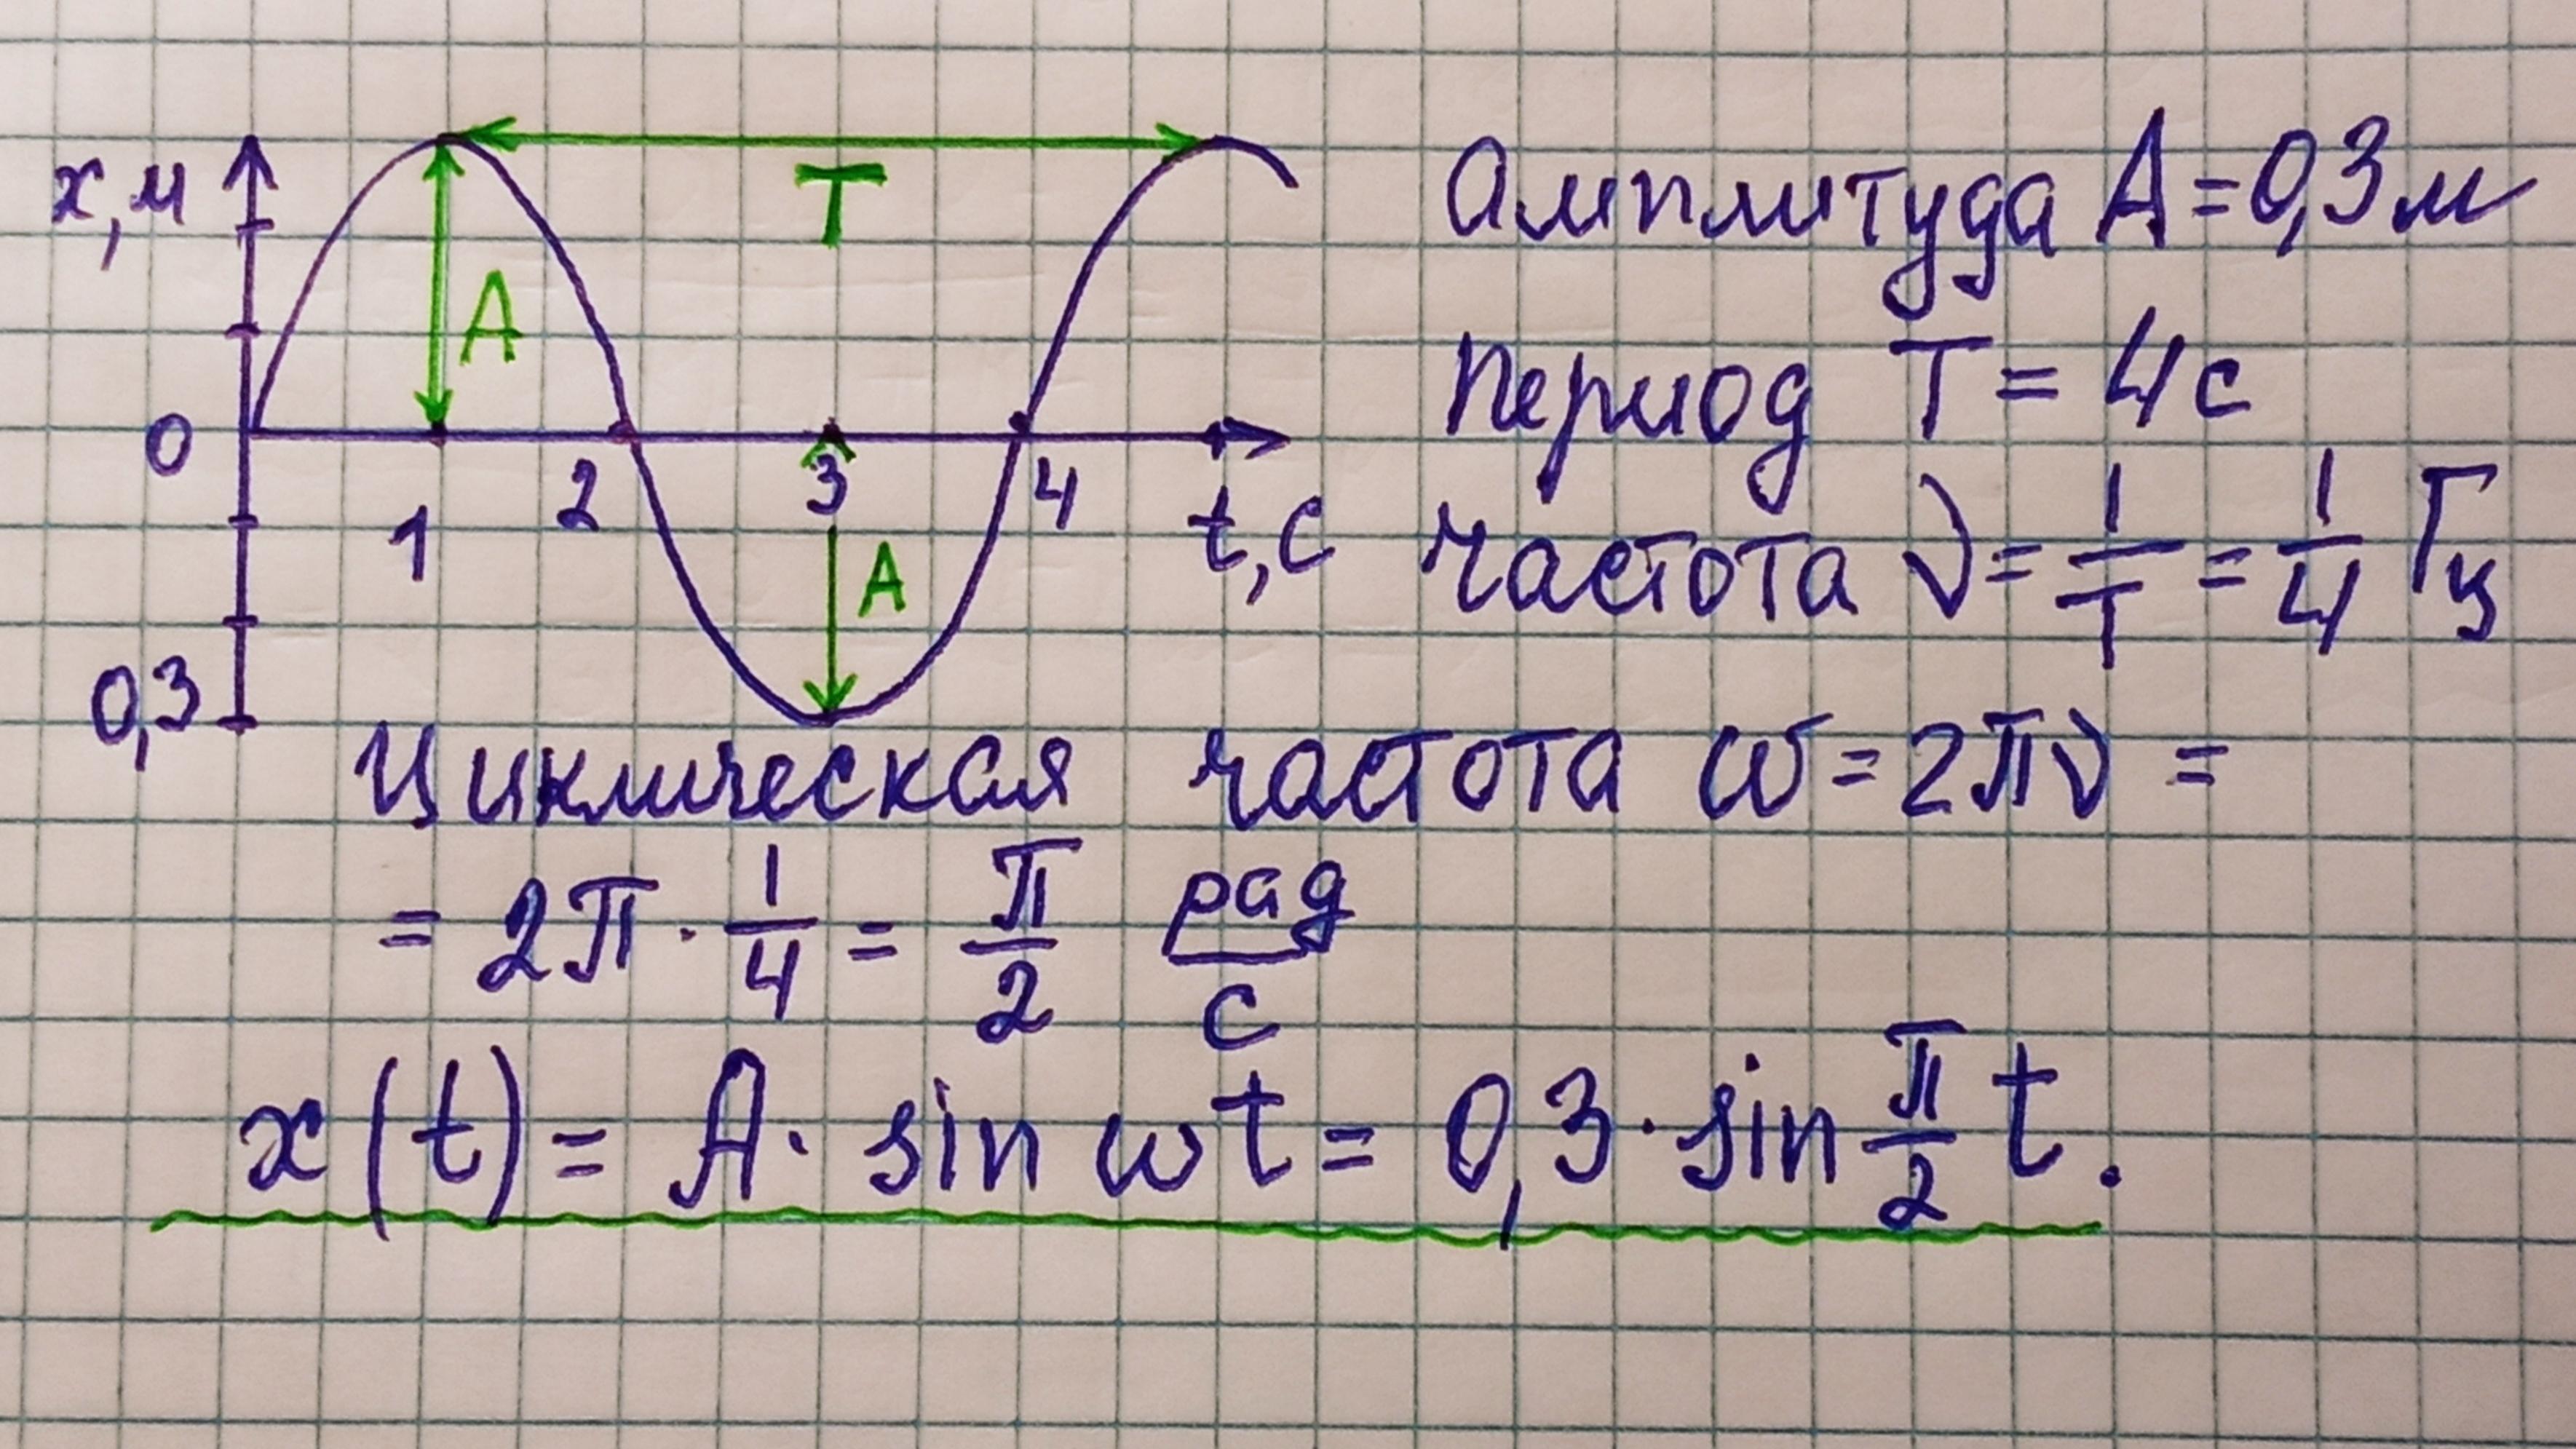 x, м
T
A
0
1 2 3 4
t, с
A
0,3
Амплитуда A = 0,3 м
Период T = 4 с
Частота ν = 1/T = 1/4 Гц
Циклическая частота ω = 2πν =
= 2π · 1/4 = π/2 рад/с
x(t) = A · sin ωt = 0,3 · sin π/2 t.